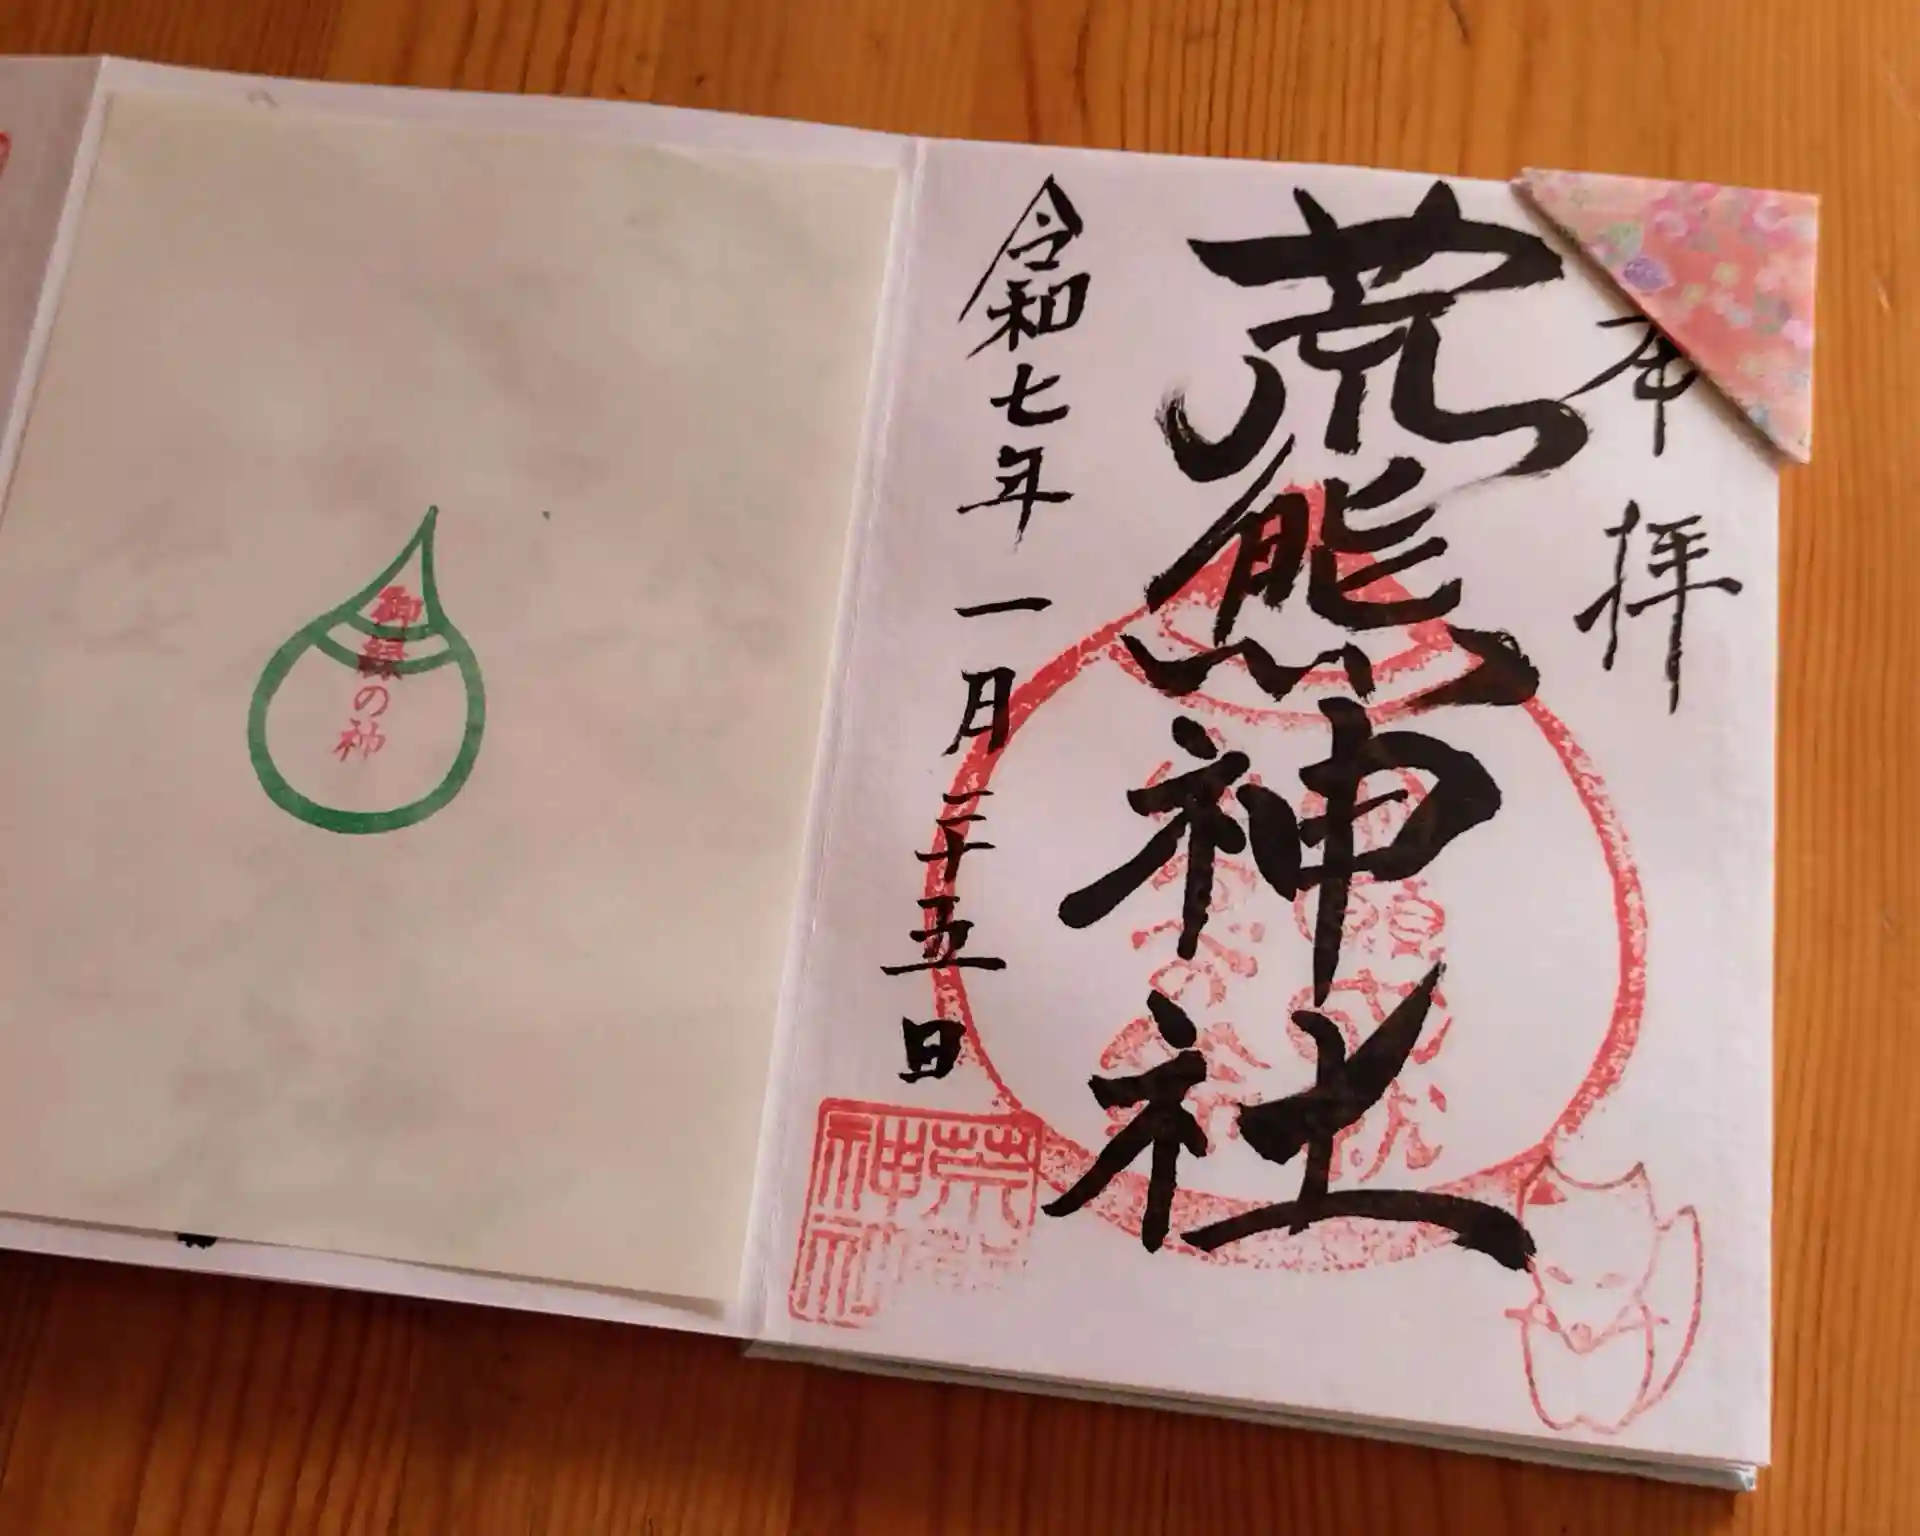 奉拝
荒熊神社
令和七年一月二十五日
荒熊
神社
御縁の神